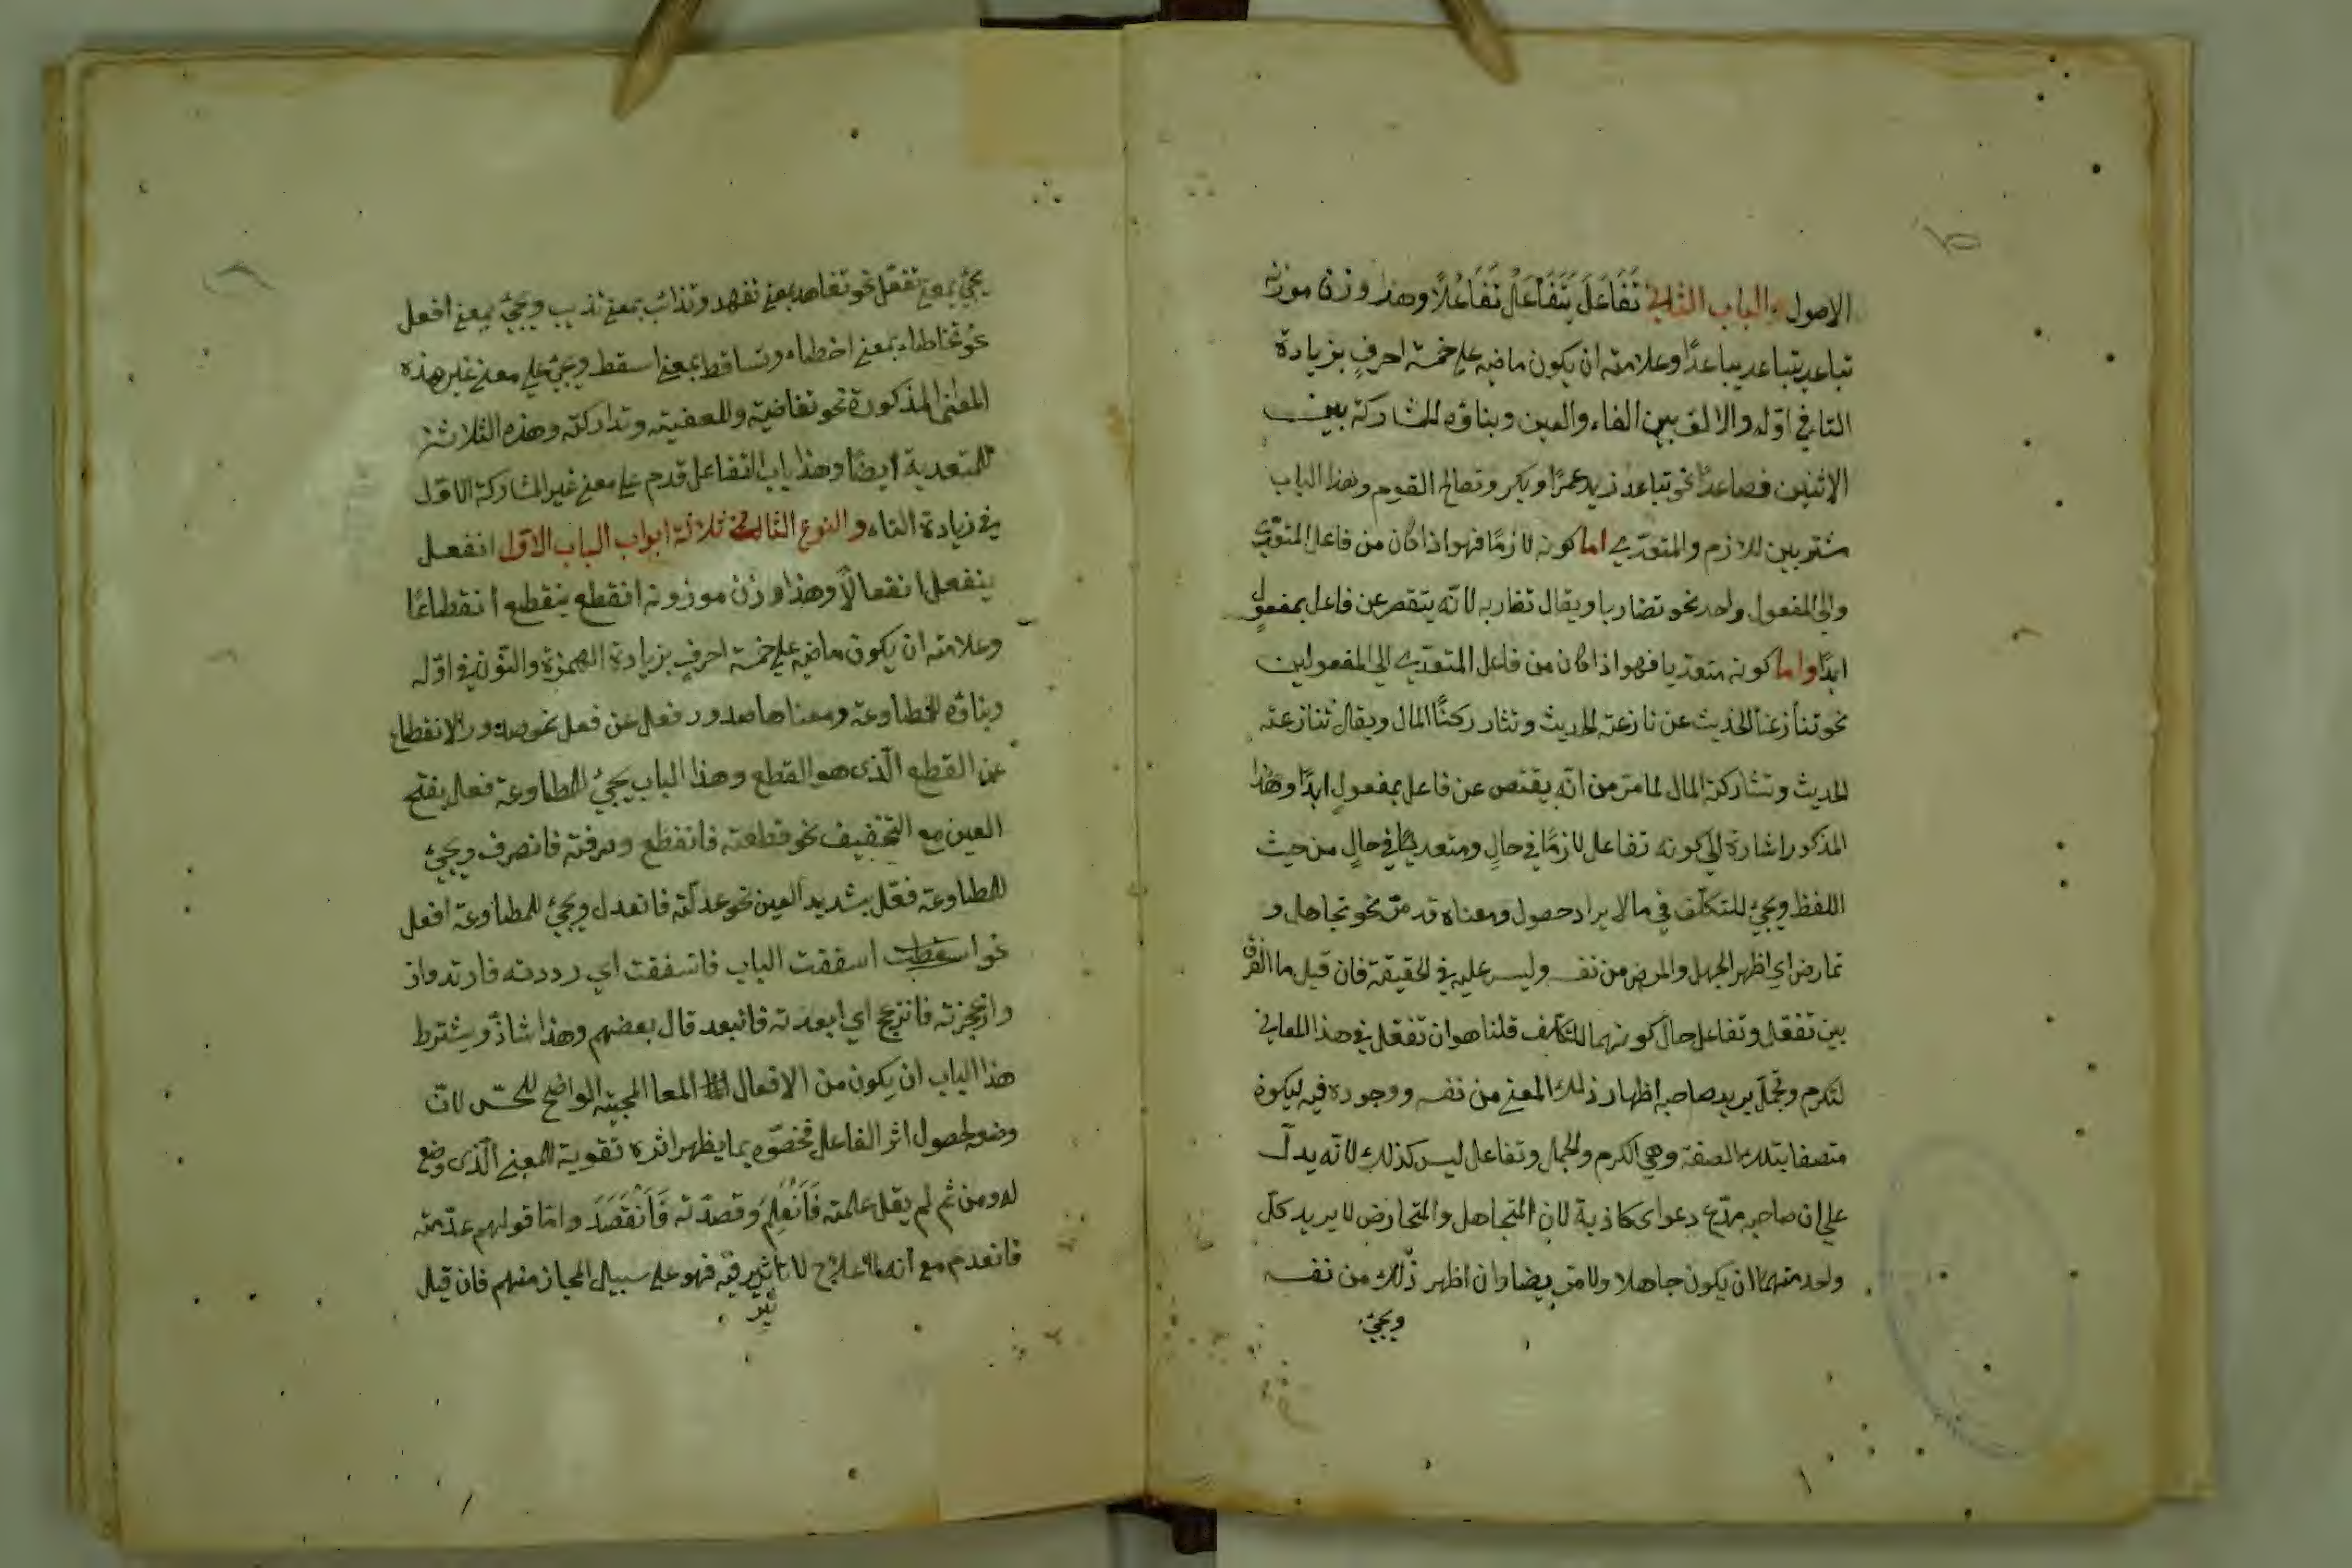 الاصول والباب الثاني تَفَاعَلَ يَتَفَاعَلُ تَفَاعُلًا وهذا وزن موزنه
تباعد يتباعد تباعدًا وعلامته ان يكون ماضيه على خمسة احرفٍ بزيادة
التا في اوّله والالف بين الفاء والعين وبناؤه للمشاركة بين
الاثنين فصاعدًا نحو تباعد زيد عمرًا وبكر وتصالح القوم وهذا الباب
مشترك بين اللازم والمتعدّي اما كونه لازمًا فهو اذا كان من فاعل المتعدّي
والى المفعول واحد نحو تضاربا ويقال تضاربه لانّه ينقص عن فاعل بمفعولٍ
ابدًا واما كونه متعديا فهو اذا كان من فاعل المتعدّي الى المفعولين
نحو تنازعنا الحديث عن نازعته الحديث وتشاركنا المال ويقال تنازعته
الحديث وتشاركته المال لما مرّ من انّه ينقص عن فاعل بمفعولٍ ابدًا وهذا
المذكور اشارة الى كونه تفاعل لازمًا في حالٍ ومتعديًا في حالٍ من حيث
اللفظ ويجئ للتكلّف في ما لا يراد حصول ومعناه قد مرّ نحو تجاهل و
تمارض اي اظهر الجهل والمرض من نفسه وليس عليه في الحقيقة فان قيل ما الفرق
بين تفعّل وتفاعل حال كونهما للتكلف قلنا هو ان تفعّل في هذا المعاني
لتكرم وتجمّل يريد صاحبه اظهار ذلك المعنى من نفسه ووجوده فيه ليكون
متصفا بتلك الصفة وهي الكرم والجمال وتفاعل ليس كذلك لانّه يدلّ
على ان صاحبه مدّع دعوى كاذبة لان المتجاهل والمتمارض لا يريد كلّ
واحد منهما ان يكون جاهلا ولا مريضا وان اظهر ذلك من نفسه
ويجئ
يجئ بمعنى تفعّل نحو تعاهد بمعنى تعهد وتذائب بمعنى تذيب ويجئ بمعنى افعل
نحو تخاطاء بمعنى اخطاء وتساقط بمعنى اسقط ويجئ على معنى غير هذه
المعنى المذكورة نحو تقاضيته وتداركته وهذه الثلاثة
للمتعدية ايضًا وهذا باب التفاعل قدم على معنى غير المشاركة الاول
في زيادة التاء والنوع الثالث ثلاثة ابواب الباب الاوّل انفعل
ينفعل انفعالًا وهذا وزن موزونه انقطع ينقطع انقطاعًا
وعلامته ان يكون ماضيه على خمسة احرفٍ بزيادة الهمزة والنون في اوّله
وبناؤه للمطاوعة ومعناها صدور فعل عن فعل نحو صدور الانقطاع
عن القطع الّذى هو القطع وهذا الباب يجئ للمطاوعة فعل بفتح
العين مع التخفيف نحو قطعته فانقطع وصرفته فانصرف ويجئ
للمطاوعة فعّل بشديد العين نحو عدلته فانعدل ويجئ للمطاوعة افعل
نحو اسفقت الباب فانسفقت اي رددته فارتد واز
وازعجزته فانزعج اي ابعدته فانبعد قال بعضهم وهذا شاذّ ويشترط
هذا الباب ان يكون من الافعال المعا الواضح للحسّ لانّ
وضعه لحصول اثر الفاعل فخصّوه بما يظهر اثره تقوية للمعنى الّذى وضع
له ومن ثم لم يقل علمته فَانْعَلِمَ وقصدته فَانْقَصَدَ وامّا قولهم عدمته
فانعدم مع انه لا علاج لا تاثير فيه فهو على سبيل المجاز منهم فان قيل
ثير